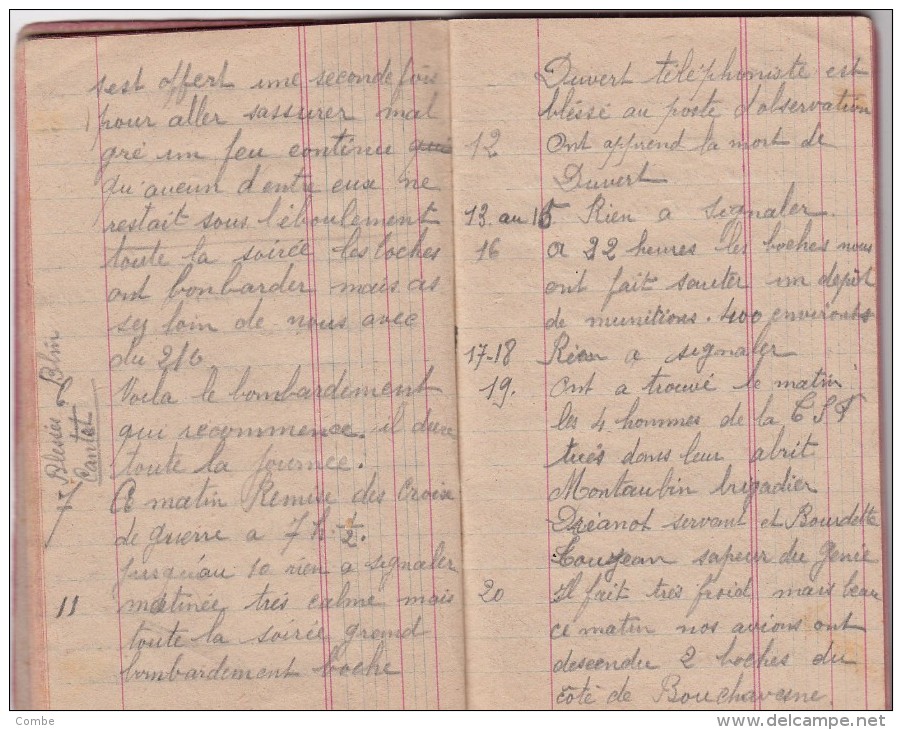 sest offert une seconde fois
pour aller sassurer mal
gré un feu continu qui
qu'aucun d'entre eux ne
restait sous l'éboulement
toute la soirée les boches
ont bonbarder mais as
sez loin de nous avec
du 210
Voila le bombardement
qui recommence. il dure
toute la journée.
Blessés Blin
Cantet
Ce matin Remise des Croix
de guerre a 7 h. 1/2.
jusqu'au 10 rien a signaler
11 matinée très calme mais
toute la soirée grand
bombardement boche
Duvert téléphoniste est
bléssé au poste d'observation
12 Ont apprend la mort de
Duvert
13. au 15 Rien a signaler.
16 a 22 heures les boches nous
ont fait sauter un depôt
de munitions. 400 environts
17-18 Rien a signaler
19. Ont a trouvé le matin
les 4 hommes de la T S F
tués dans leur abrit
Montaubin brigadier
Dréanot servant et Bourdette
Lougean sapeur du Genie
20 Il fait très froid mais beau
ce matin nos avions ont
descendu 2 boches du
côté de Bouchavesne.
Combe
delcampe.net